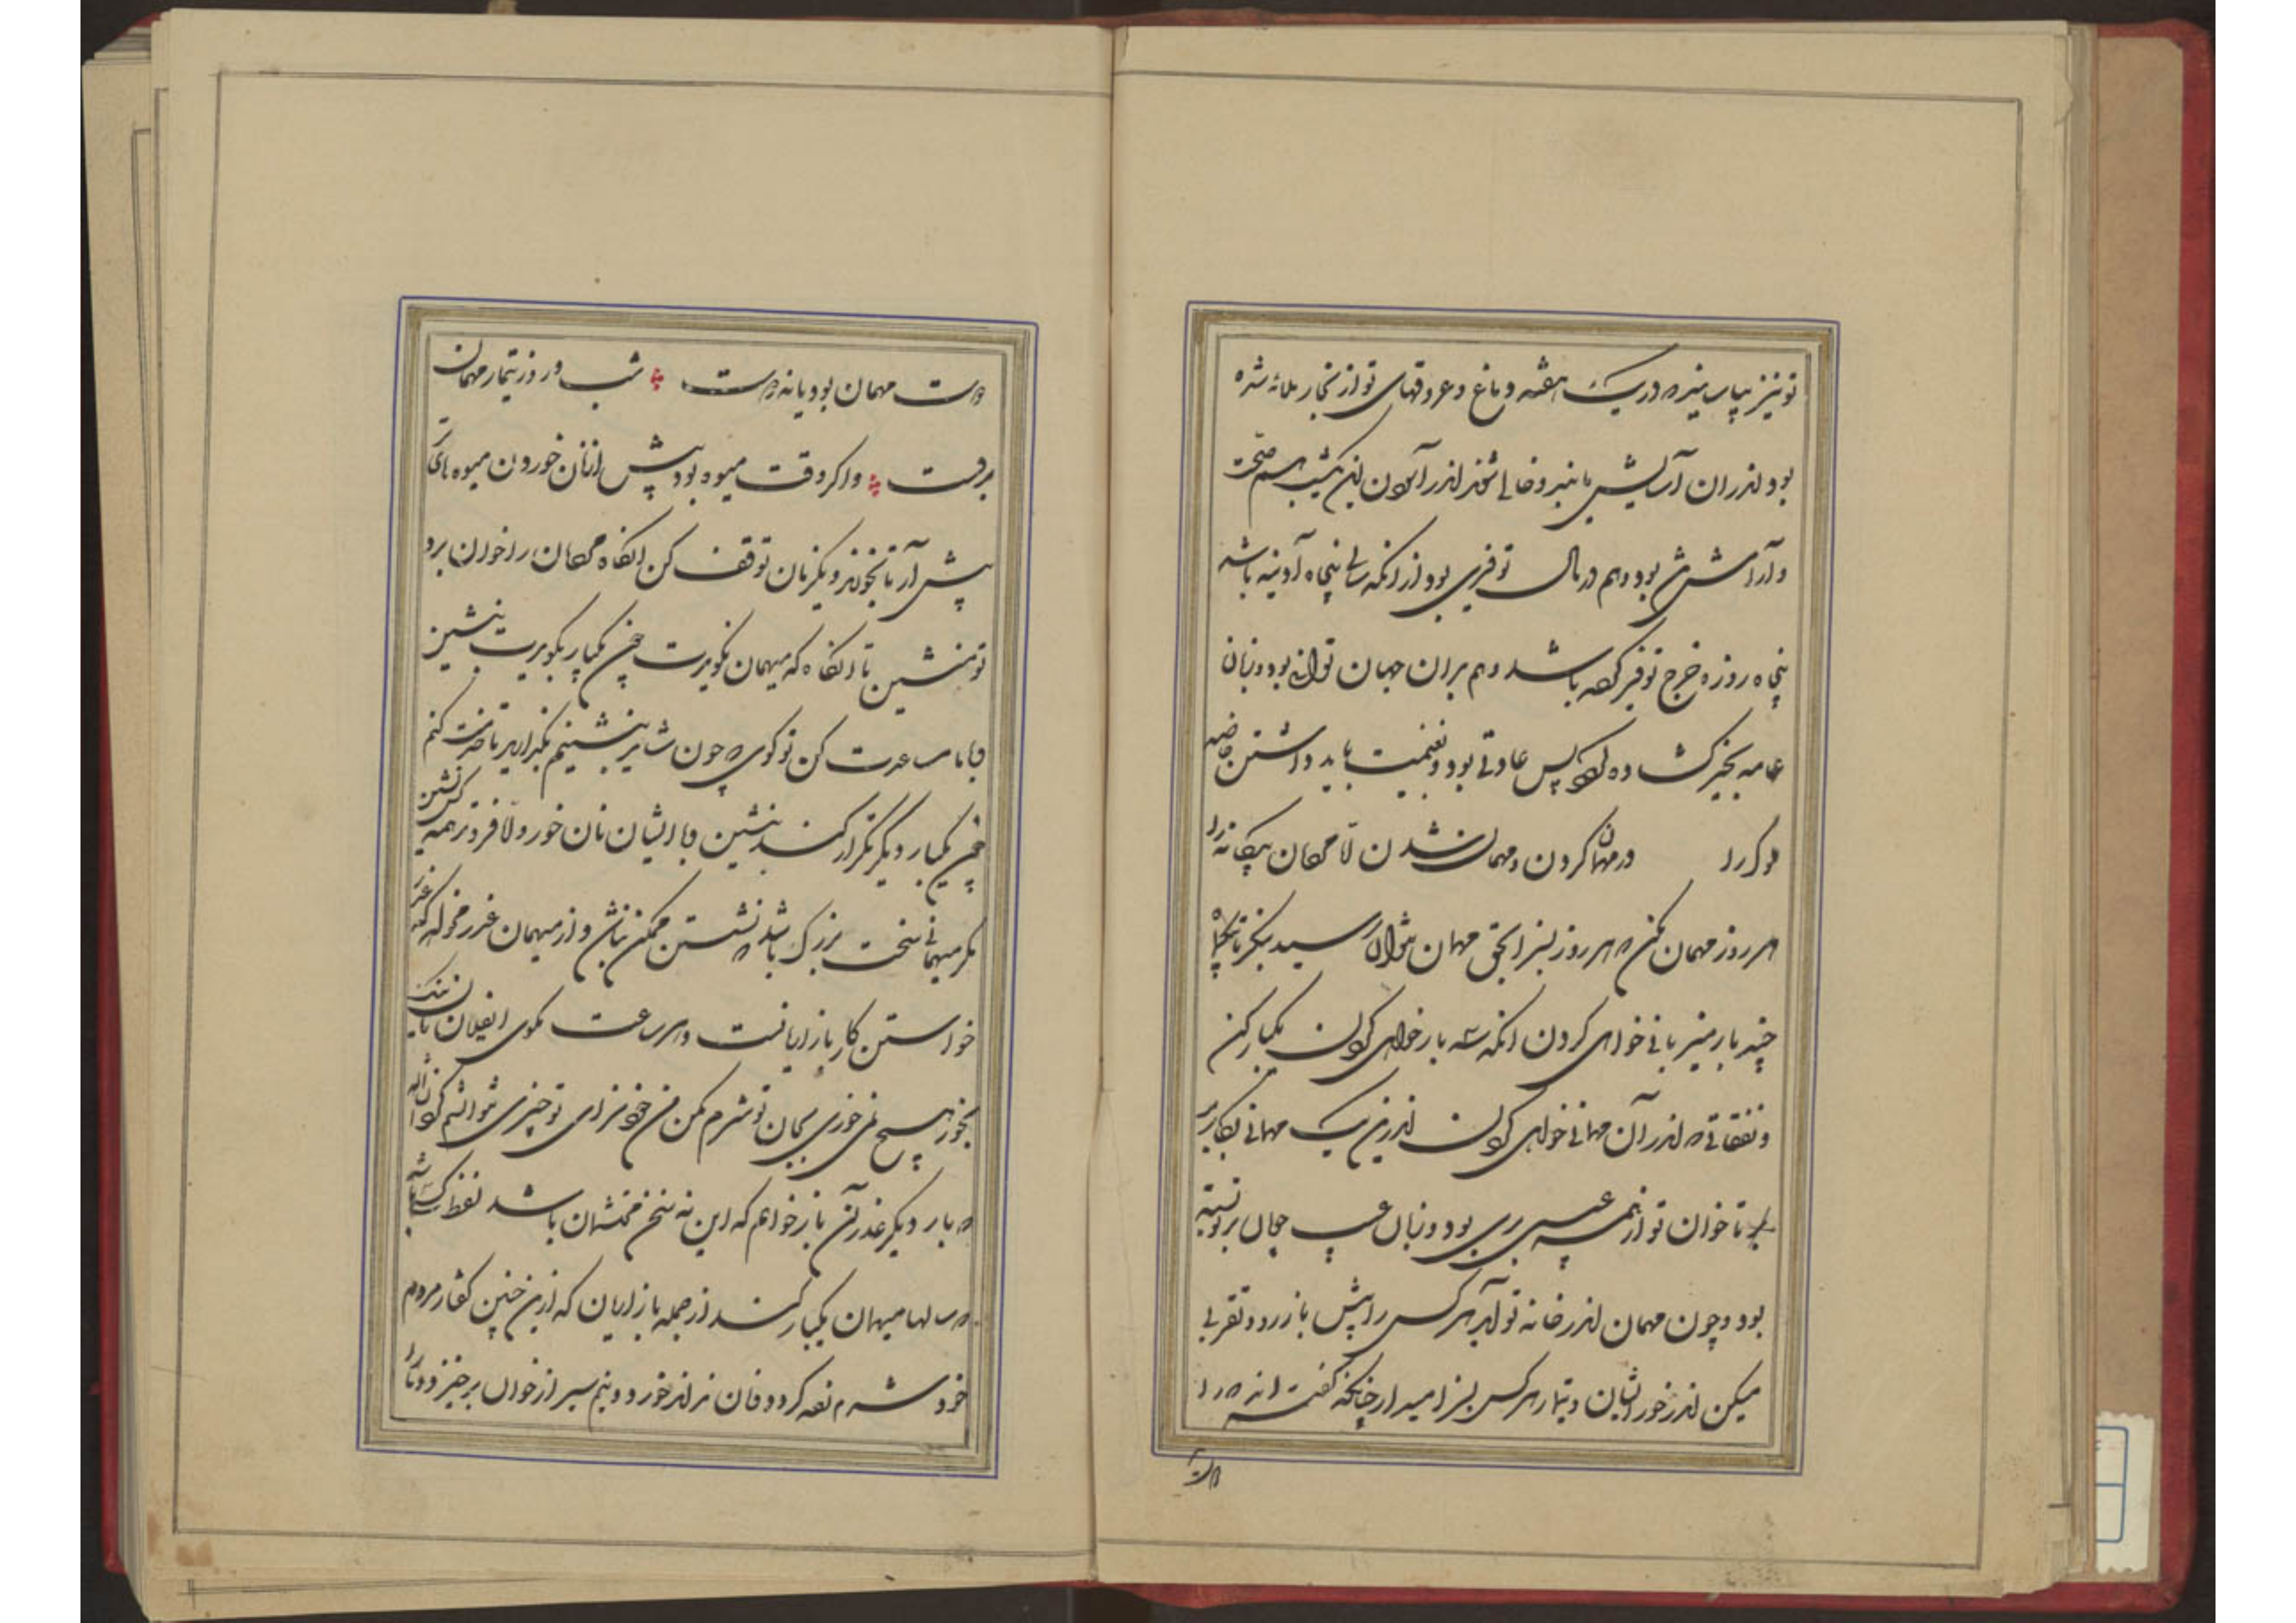 تو نیز بیاسایند که در یک هفته دماغ و عروقهای تو از بخار ملا شده
بود اندران آسایش یابند و خالی شوند اندر آسودن این یک شب هم صحت
و آرامش تن بود و هم در مال توفیری بود از آنکه سالی پنجاه آدینه باشد
پنجاه روزه خرج توفیر کرده باشد و هم بران جهان ثوابی بود و زبان
عامه بخیر کشاده کردد پس عادتی بود و بغنیمت باید داشتن خاصه
در مهمان کردن و مهمان شدن اما مردمان بیکانه را
هر روز مهمان مکن که هر روز بسزا بحق مهمان نتوان رسید بنکر تا بیکماه
چند بار میزبانی خواهی کردن آنکه سه بار خواهی کردن یکبار کن
و نفقاتی که اندر آن مهمانی خواهی کردن اندرین یک مهمانی بکار بر
تا خوان تو از همه عیبی بری بود و زبان عیب جویان بر تو بسته
بود و چون مهمان اندر خانه تو آید هر کس را پیش باز رو و تقربی
میکن اندر خور ایشان و تیمار هر کس بسزا میدار چنانکه گفته اند که را
دوست
دوست مهمان بود یا نه دوست شب و روز تیمار مهمان
بروست و اکر وقت میوه بود پیش از نان خوردن میوه های
پیش آر تا بخورند و یکزمان توقف کن آنکاه مردمان را خوان برد
تو منشین تا آنکاه که میهمان نگویدت چون یکبار بگویدت بنشین
با ما مساعدت کن تو کوی که چون شاید بنشینم بگذارید تا خدمت کنم
چون یکبار دیگر تکرار کنند بنشین و با ایشان نان خور و لا فروتر همه کس نشین
مکر میهمانی سخت بزرک باشد که نشستن ممکن نباشد و از میهمان عذر مخواه که عذر
خواستن کار بازاریانست و هر ساعت مکوی ای فلان نان نیک
بخور هیچ نمی خوری بجان تو شرم مکن من خود سزای تو چیزی نتوانستم کردن انشاالله
که بار دیگر عذر آن باز خواهم که این نه سخن محتشمان باشد لفظ کسی باشد
که سالها میهمان یکبار کند از جمله بازاریان که ازین چنین گفتار مردم
خود شرم زده کردد و نان نتواند خورد و نیم سیر از خوان برخیزد و ما را